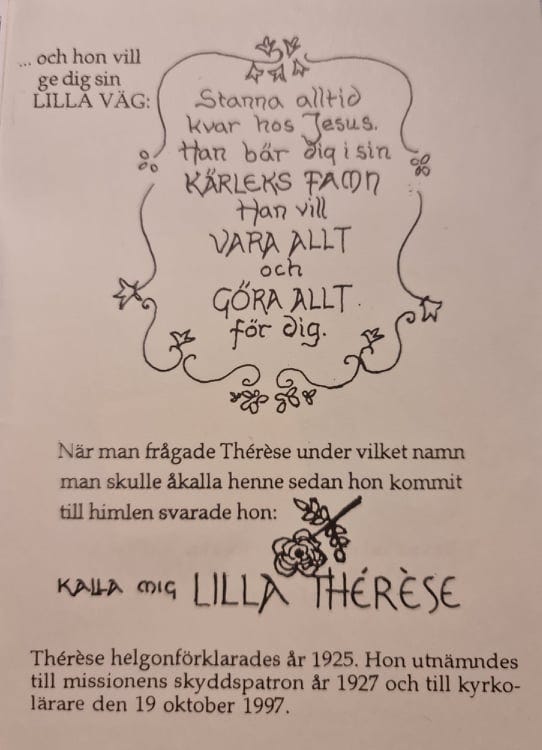 ... och hon vill
ge dig sin
LILLA VÄG:
Stanna alltid
kvar hos Jesus.
Han bär dig i sin
KÄRLEKS FAMN
Han vill
VARA ALLT
och
GÖRA ALLT
för dig.
När man frågade Thérèse under vilket namn
man skulle åkalla henne sedan hon kommit
till himlen svarade hon:
KALLA MIG LILLA THÉRÈSE
Thérèse helgonförklarades år 1925. Hon utnämndes
till missionens skyddspatron år 1927 och till kyrko-
lärare den 19 oktober 1997.